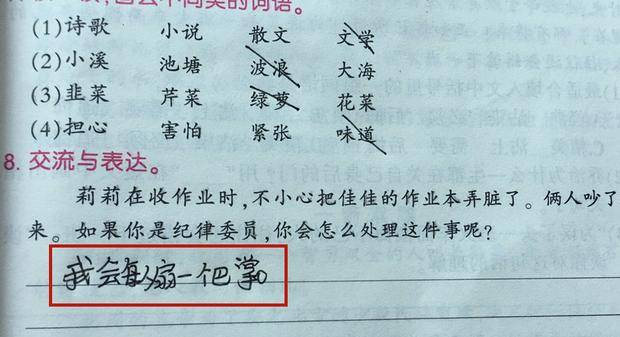 去不同类的词语。
(1)诗歌 小说 散文 文学
(2)小溪 池塘 波浪 大海
(3)韭菜 芹菜 绿萝 花菜
(4)担心 害怕 紧张 味道
8. 交流与表达。
莉莉在收作业时,不小心把佳佳的作业本弄脏了。俩人吵了
来。如果你是纪律委员,你会怎么处理这件事呢?
我会每人扇一个巴掌。